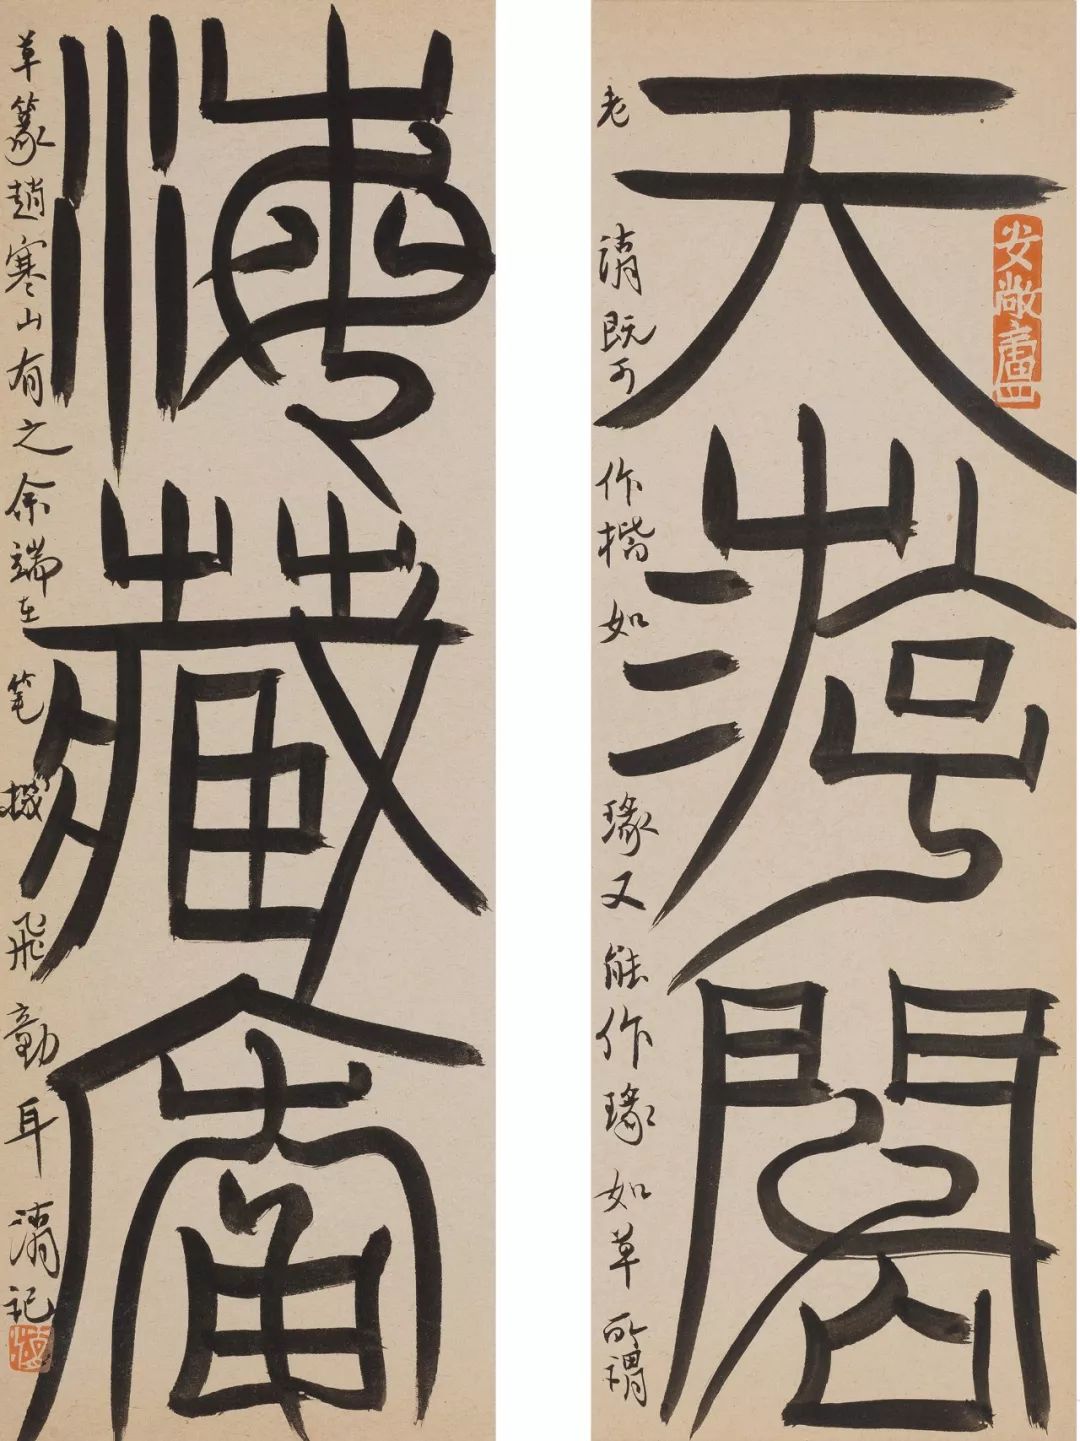 天游閣
老
既可作楷如瑑又能作瑑如草所謂
安敞廬
海藏庵
草篆趙寒山有之余端在筆機飛動耳
記